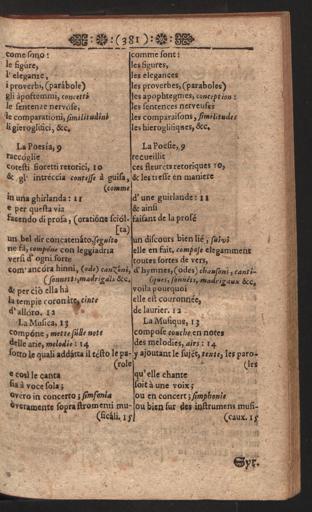 :(381):
come sono:
le figúre,
l'eleganze,
i proverbi, (parábole)
gli apoftemmi, concetti
le sentenze nervóse,
le comparationi, similitudini
li gieroglifici, &c.
La Poesía, 9
raccóglie
cotesti fioretti retorici, 10
& gl' intréccia contesse à guisa,
(come
in una ghirlanda: 11
e per questa via
facendo di prosa, (oratióne sciól-
(ta)
un bel dir concatenáto, seguito
ne fà, compóne con leggiadria
versi d'ogni sorte
com'ancóra hinni, (ode) canzóni,
(sonnetti, madrigáli &c.
& per ciò ella hà
la témpie coronáte, cinte
d'alloro. 12
La Musica, 13
compóne, mette sù le note
delle arie, melodíe: 14
sotto le quali addátta il tésto le pa-
(role
e così le canta
sia à voce sola;
overo in concerto; sinfonia
overamente sopra stromenti mu-
(sicáli. 15
comme sont:
les figures,
les elegances
les proverbes, (paraboles)
les apophtegmes, conception:
les sentences nerveuses
les comparaisons, similitudes
les hieroglifiques, &c.
La Poësie, 9
recueillit
ces fleurets retoriques 10,
& les tresse en maniere
d'une guirlande: 11
& ainsi
faisant de la prose
un discours bien lié, suivi
elle en fait, compose elegamment
toutes sortes de vers,
d'hymnes, (odes) chansons, canti-
(ques, sonnéts, madrigaux &c.
voila pourquoi
elle est couronnée,
de laurier. 12
La Musique, 13
compose couche en notes
des melodies, airs: 14
y ajoutant le sujét, texte, les paro-
(les
qu'elle chante
soit à une voix;
ou en concert; simphonie
ou bien sur des instrumens musi-
(caux. 15
Syr.